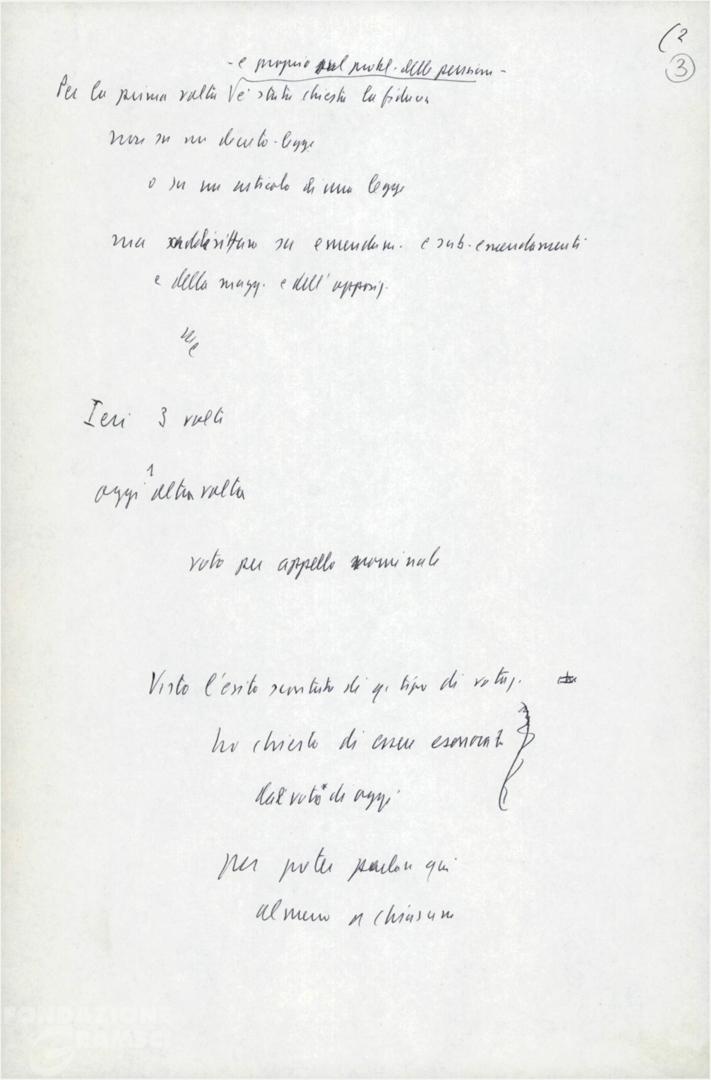 (2
3
- e proprio sul probl. delle pensioni -
Per la prima volta è stata chiesta la fiducia
non su un decreto-legge
o su un articolo di una legge
ma addirittura su emendam. e sub-emendamenti
e della magg. e dell'opposiz.
Ieri 3 volte
oggi 1 altra volta
voto per appello nominale
Visto l'esito scontato di q. tipo di votaz.
ho chiesto di essere esonerato
dal voto di oggi
per poter parlare qui
almeno in chiusura
FONDAZIONE
GRAMSCI